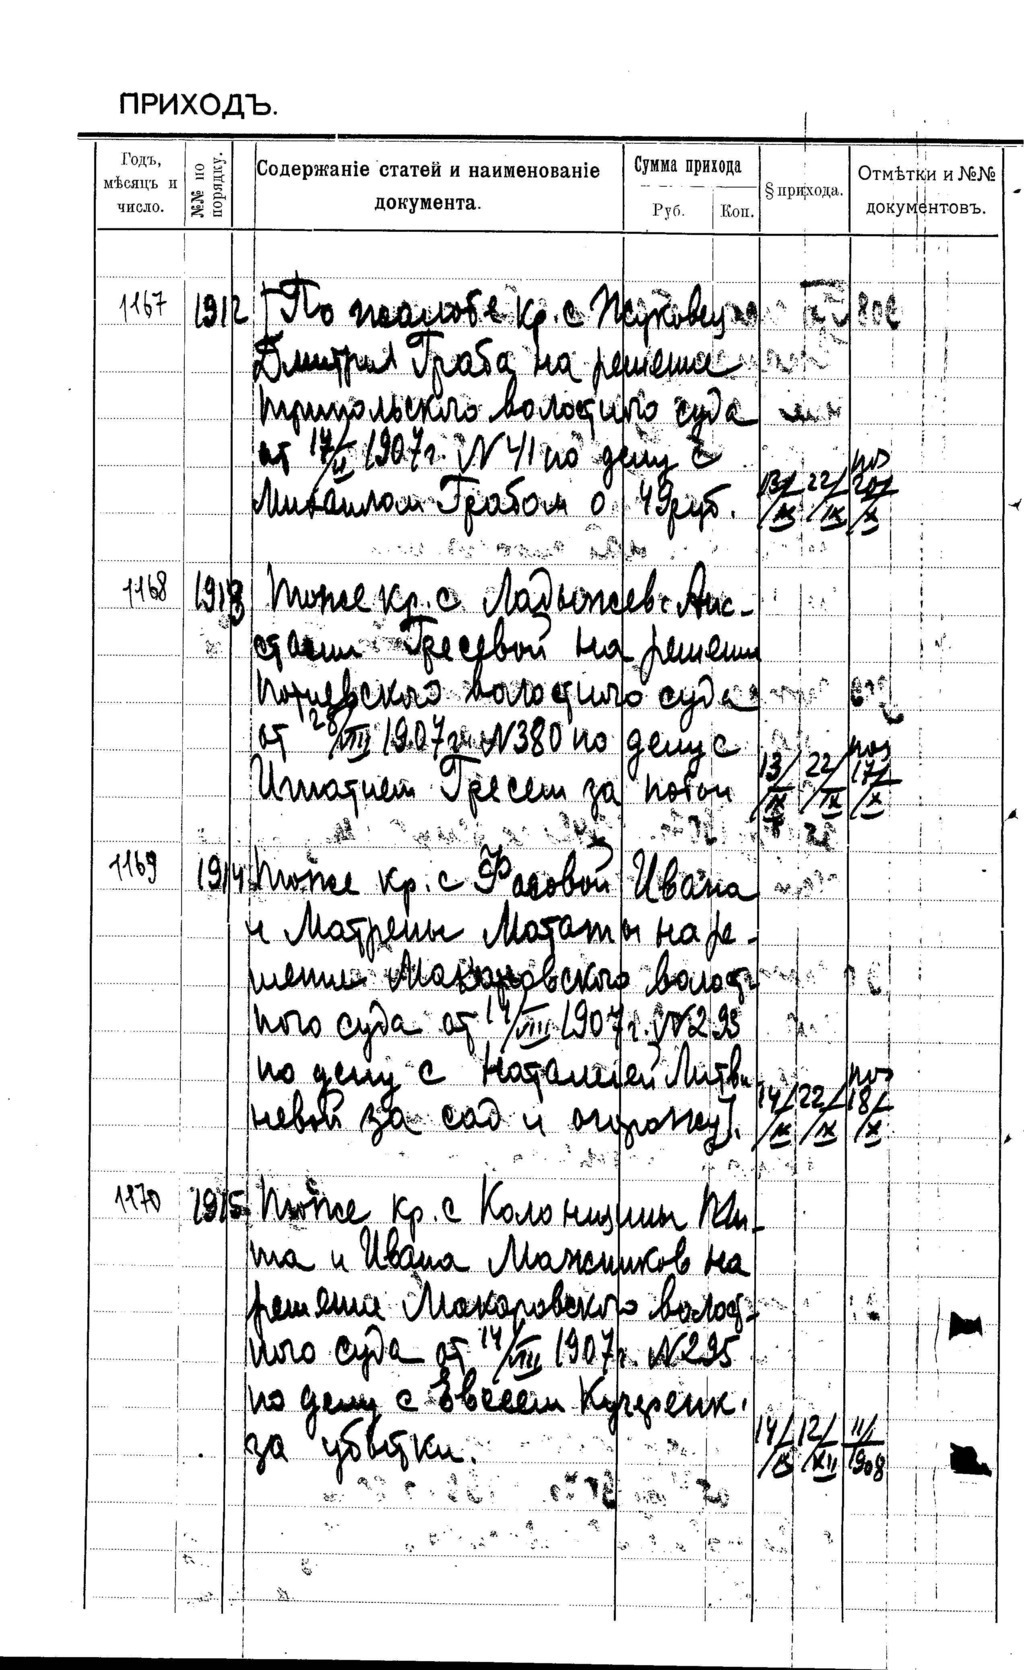 ПРИХОДЪ.
Годъ, мѣсяцъ и число.
№№ по порядку.
Содержаніе статей и наименованіе документа.
Сумма прихода
Руб. Коп.
§ прихода.
Отмѣтки и №№ документовъ.
1167 1912 По жалобе кр. с Жуковец
Дмитрия Граба на решение
трипольского волостного суда
от 17/II 1907 г. N 41 по делу с
Михаилом Грабом о 49 руб. 13/IX 22/IX 20/X
1168 1913 тоже кр. с. Ладыжев Анс-
стасии Гресевой на решении
волостного суда
от 28/VIII 1907 г. N 380 по делу с
Игнатием Гресем за побои 13/IX 22/IX 17/X
1169 1914 тоже кр. с Фасовой Ивана
и Матрены на ре-
шение Макаровского волост
ного суда от 14/VIII 1907 г. N 295
по делу с Наталией Литви
невой за сад и огорожу. 14/IX 22/IX 18/X
1170 1915 тоже кр. с Колонщины Ти-
та и Ивана на
решение Макаровского волост-
ного суда от 14/VIII 1907 г. N 295
по делу с Евсеем Кучеренк.
за убытки. 14/IX 12/XII 11/I 1908